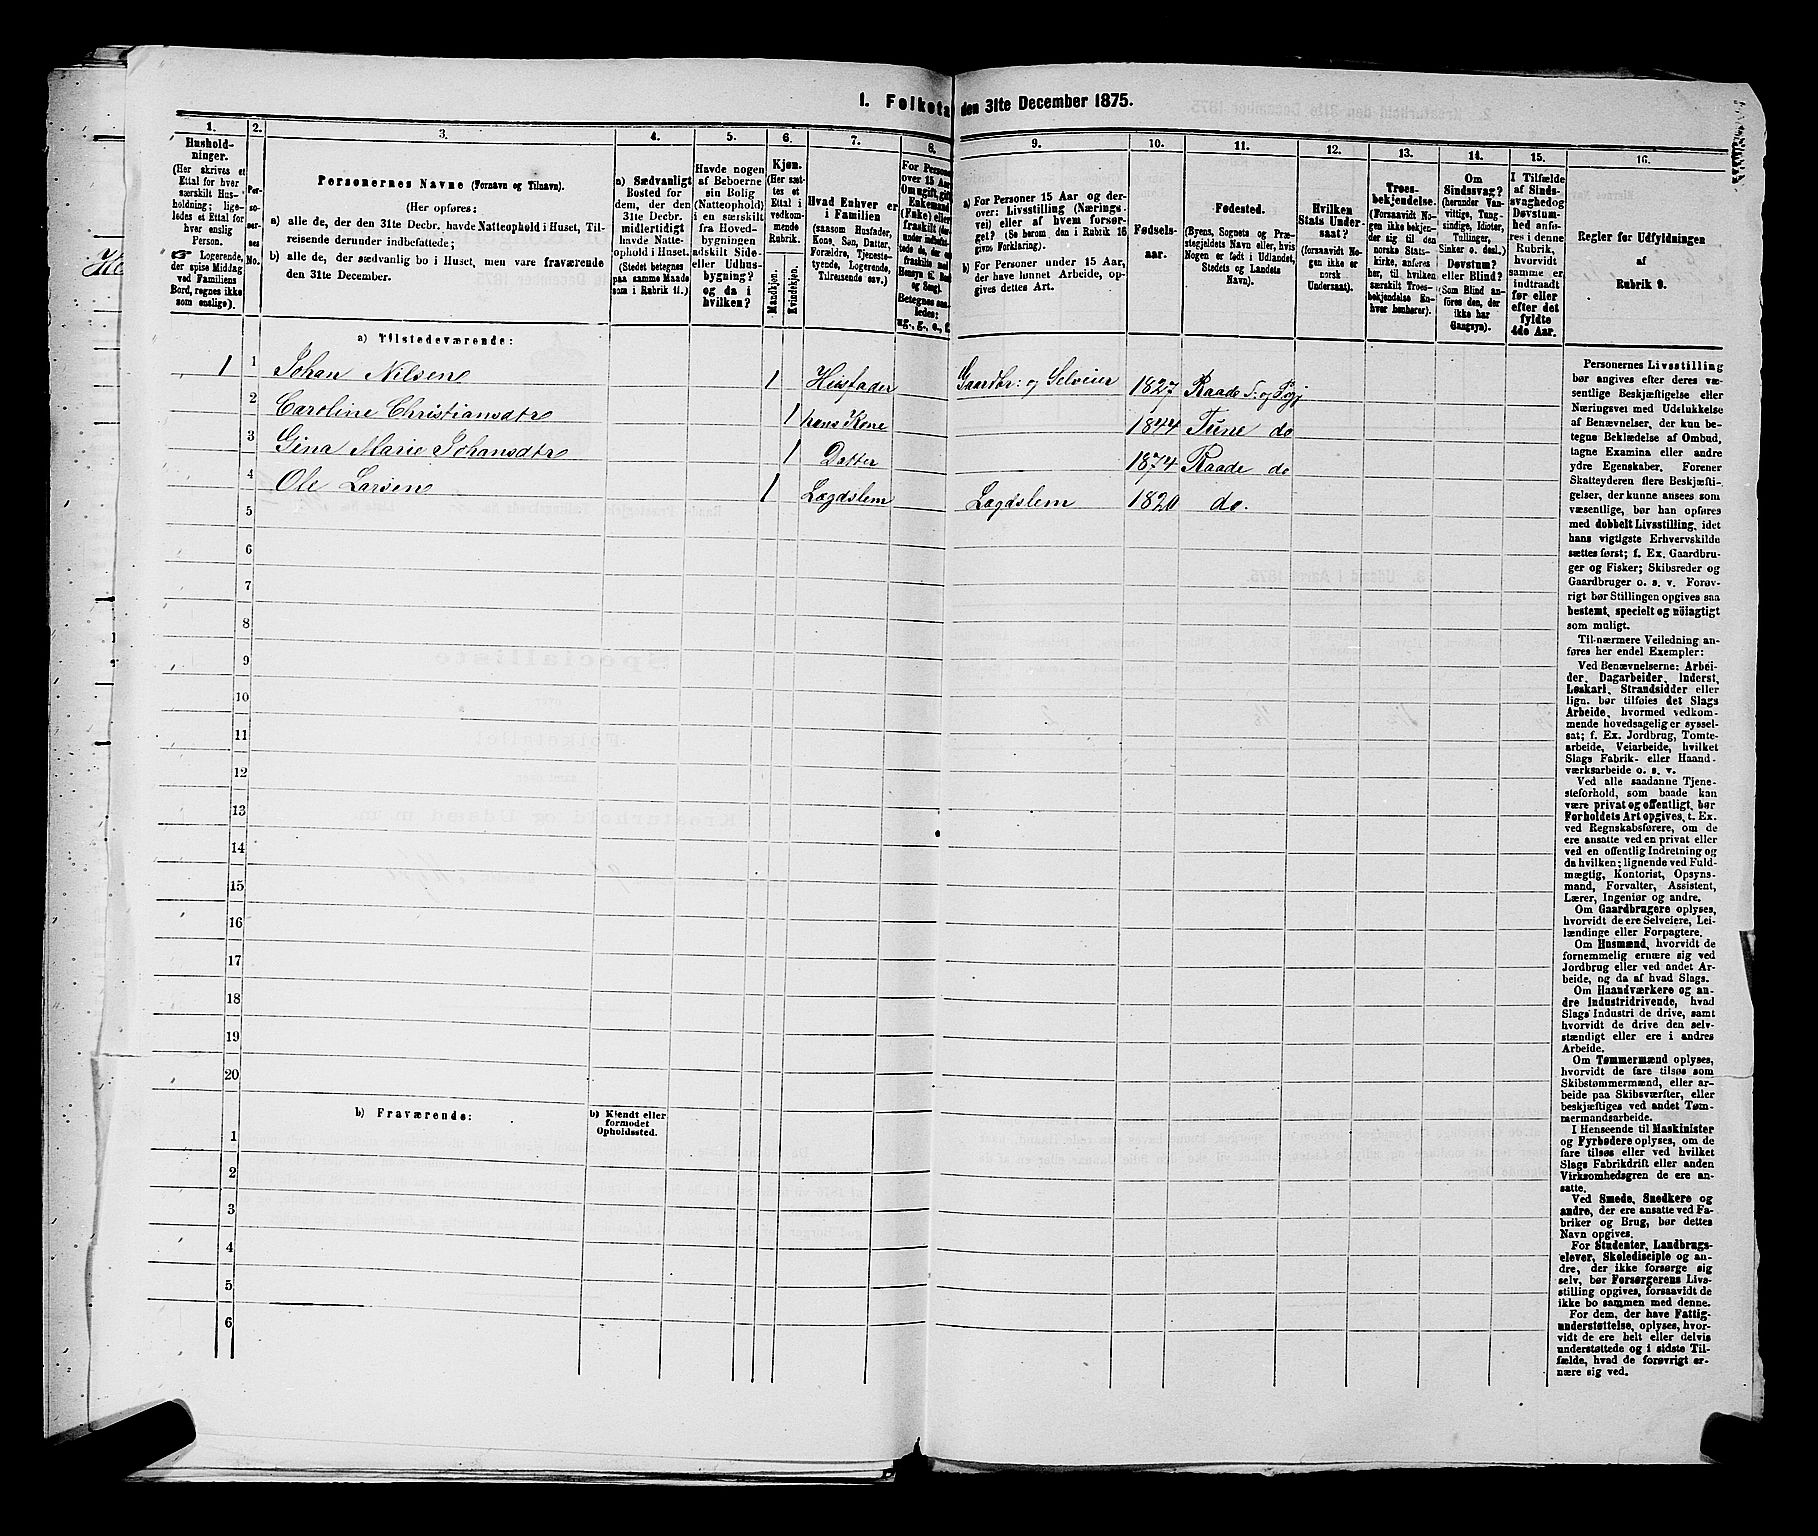 1. Folketæ den 31te December 1875.
1. 2. 3. 4. 5. 6. 7. 8. 9. 10. 11. 12. 13. 14. 15. 16.
Hushold-
ninger.
(Her skrives et
Ettal for hver
særskilt Hus-
holdning; lige-
ledes et Ettal for
hver enslig
Person.
☞ Logerende,
der spise Middag
ved Familiens
Bord, regnes ikke
som enslige).
Per-
so-
ner-
nes
No.
Personernes Navne (Fornavn og Tilnavn).
(Her opføres:
a) alle de, der den 31te Decbr. havde Natteophold i Huset, Til-
reisende derunder indbefattede;
b) alle de, der sædvanlig bo i Huset, men vare fraværende
den 31te December.
a) Sædvanligt
Bosted for
dem, der den
31te Decbr.
midlertidigt
havde Natte-
ophold i Huset.
(Stedet betegnes
paa samme Maade
som i Rubrik 11.)
Havde nogen
af Beboerne
sin Bolig
(Natteophold)
i en særskilt
fra Hoved-
bygningen
adskilt Side-
eller Udhus-
bygning?
og da i
hvilken?
Kjøn.
(Her sæt-
tes et
Ettal i
vedkom-
mende
Rubrik.
Mandkjøn.
Kvindekjøn.
Hvad Enhver er
i Familien
(saasom Husfader,
Kone, Søn, Datter,
Forældre, Tjeneste-
tyende, Logerende,
Tilreisende osv.)
For Persone
over 15 Aar
Om ugift, gift
Enkemand
(Enke) eller
fraskilt
Betegnes saa-
ledes:
ug., g., e., f.
a) For Personer 15 Aar og der-
over: Livsstilling (Nærings-
vei) eller af hvem forsør-
get? (Se herom den i Rubrik 16
givne Forklaring).
b) For Personer under 15 Aar,
der have lønnet Arbeide, op-
gives dettes Art.
Fødsels-
aar.
Fødested.
(Byens, Sognets og Præ-
stegjeldets Navn eller, hvis
Nogen er født i Udlandet,
Stedets og Landets
Navn).
Hvilken
Stats Under-
saat?
(forsaavidt No-
gen ikke er
norsk
Undersaat).
Troes-
bekjendelse.
(Forsaavidt No-
gen ikke bekjen-
der sig til den
norske Stats-
kirke, anføres
her, til hvilken
særskilt Troes-
bekjendelse En-
hver henhører).
Om
Sindssvag?
(herunder Van-
vittige, Tung-
sindige, Idioter,
Tullinger,
Sinker o. desl.)
Døvstum?
eller Blind?
(Som Blind an-
føres den, der
ikke har
Gangsyn).
I Tilfælde
af Sinds-
svaghed og
Døvstum-
hed anfø-
res i denne
Rubrik,
hvorvidt
samme er
indtraadt
før eller
efter det
fyldte
4de Aar.
Regler for Udfyldningen
af
Rubrik 9.
a) Tilstedeværende:
1 1 Johan Nilsen 1 Huusfader Gaardbr: og Selveier 1827 Raade S: og Pgj
2 Caroline Christiansdtr 1 hans Kone 1844 Tune do
3 Gina Marie Johansdtr 1 Datter 1874 Raade do
4 Ole Larsen 1 Lægdslem Lægdslem 1820 do.
5
6
7
8
9
10
11
12
13
14
15
16
17
18
19
20
b) Fraværende:
b) Kjendt eller
formodet
Opholdssted.
1
2
3
4
5
6
Personernes Livsstilling
bør angives efter deres væ-
sentlige Beskjæftigelse eller
Næringsvei med Udelukkelse
af Benævnelser, der kun be-
tegne Beklædelse af Ombud,
tagne Examina eller andre
ydre Egenskaber. Forener
Skatteyderen flere Beskjæfti-
gelser, der kunne ansees som
væsentlige, bør han opføres
med dobbelt Livsstilling, idet
hans vigtigste Erhvervskilde
sættes først; f. Ex. Gaardbru-
ger og Fisker; Skibsreder og
Gaardbruger o. s. v. Forøv-
rigt bør Stillingen opgives saa
bestemt, specielt og nöiagtigt
som muligt.
Til nærmere Veiledning an-
føres her endel Exempler:
Ved Benævnelserne: Arbei-
der, Dagarbeider, Inderst,
Løskarl, Strandsidder eller
lign. bør tilføies det Slags
Arbeide, hvormed vedkom-
mende hovedsagelig er syssel-
sat; f. Ex. Jordbrug, Tomte-
arbeide, Veiarbeide, hvilket
Slags Fabrik- eller Haand-
værksarbeide o. s. v.
Ved alle saadanne Tjene-
steforhold, som baade kan
være privat og offentligt, bør
Forholdets Art opgives, t. Ex.
ved Regnskabsførere, om de
ere ansatte ved en privat eller
ved en offentlig Indretning og
da hvilken; lignende ved Fuld-
mægtig, Kontorist, Opsyns-
mand, Forvalter, Assistent,
Lærer, Ingeniør og andre.
Om Gaardbrugere oplyses,
hvorvidt de ere Selveiere, Lei-
lændinge eller Forpagtere.
Om Husmænd, hvorvidt de
fornemmelig ernære sig ved
Jordbrug eller ved andet Ar-
beide, og da af hvad Slags.
Om Haandværkere og an-
dre Industridrivende, hvad
Slags Industri de drive, samt
hvorvidt de drive den selv-
stændigt eller ere i andres
Arbeide.
Om Tømmermænd oplyses,
hvorvidt de fare tilsøs som
Skibstømmermænd, eller ar-
beide paa Skibsværfter, eller
beskjæftiges ved andet Tøm-
mermandsarbeide.
I Henseende til Maskinister
og Fyrbødere oplyses, om de
fare tilsøs eller ved hvilket
Slags Fabrikdrift eller anden
Virksomhedsgren de ere an-
satte.
Ved Smede, Snedkere og
andre, der ere ansatte ved Fa-
briker og Brug, bør dettes
Navn opgives.
For Studenter, Landbrugs-
elever, Skoledisciple og an-
dre, der ikke forsørge sig
selv, bør Forsørgerens Livs-
stilling opgives, forsaavidt de
ikke bo sammen med denne.
For dem, der have Fattig-
understøttelse, oplyses, hvor-
vidt de ere helt eller delvis
understøttede og i sidste Til-
fælde, hvad de forøvrigt er-
nære sig ved.